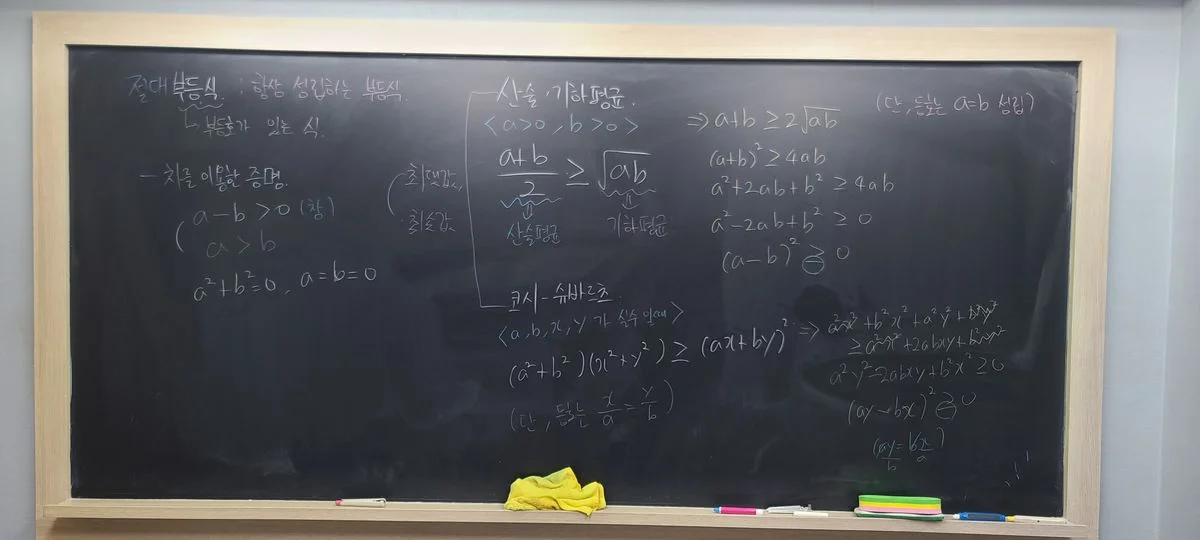 절대부등식 : 항상 성립하는 부등식.
↳ 부등호가 있는 식.
- 차를 이용한 증명.
a-b>0 (참)
a>b
a²+b²=0, a=b=0
최댓값,
최솟값
산술·기하평균.
<a>0, b>0>
\frac{a+b}{2} ≥ \sqrt{ab}
산술평균 기하평균
⇒ a+b ≥ 2\sqrt{ab}
(단, 등호는 a=b 성립)
(a+b)² ≥ 4ab
a²+2ab+b² ≥ 4ab
a²-2ab+b² ≥ 0
(a-b)² ≥ 0
코시-슈바르츠.
<a,b,x,y가 실수일때>
(a²+b²)(x²+y²) ≥ (ax+by)²
(단, 등호는 \frac{x}{a}=\frac{y}{b})
⇒ a²x²+b²x²+a²y²+b²y²
≥a²x²+2abxy+b²y²
a²y²-2abxy+b²x² ≥0
(ay-bx)² ≥0
(\frac{ay}{b}=\frac{bx}{a})